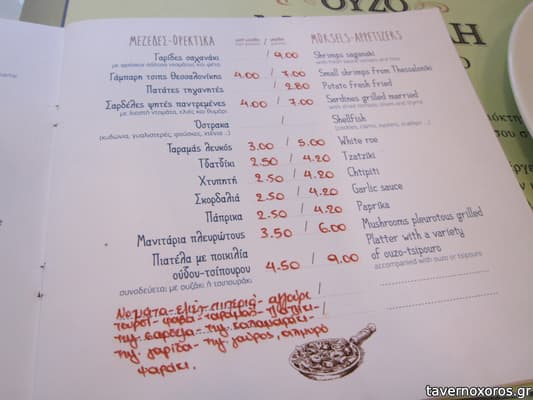 ΟΥΖΟ
ΜΕΖΕΔΕΣ-ΟΡΕΚΤΙΚΑ
MORSELS-APPETIZERS
Γαρίδες σαχανάκι / 9.00 Shrimps saganaki
με φρέσκια σάλτσα ντομάτας και φέτα with fresh sauce tomatoes and feta
Γάμπαρη τσιπς Θεσσαλονίκης 4.00 / 7.00 Small shrimps from Thessaloniki
Πατάτες τηγανητές / 2.80 Potato fresh fried
Σαρδέλες ψητές παντρεμένες 4.00 / 7.00 Sardines grilled married
με διαστή ντομάτα, ελιές και θυμάρι with dried tomato, olives and thyme
Όστρακα / Shellfish
(κυδώνια, γυαλιστερές, φούσκες, πίννα ..)
Ταραμάς λευκός 3.00 / 5.00 White roe
Τζατζίκι 2.50 / 4.20 Tzatziki
Χτυπητή 2.50 / 4.20 Chtipiti
Σκορδαλιά 2.50 / 4.20 Garlic sauce
Πάπρικα 2.50 / 4.20 Paprika
Μανιτάρια πλευρώτους 3.50 / 6.00 Mushrooms pleurotous grilled
Πιατέλα με ποικιλία Platter with a variety
ούζου-τσίπουρου 4.50 / 9.00 of ouzo-tsipouro
συνοδεύεται με ουζάκι ή τσιπουράκι accompanied with ouzo or tsipouro
Ντομάτα - ελιές - πιπεριά - αγγούρι
τουρσί - φάβα - ταραμάς - πατζάρι -
τηγ. σαρδέλα - τηγ. καλαμαράκι -
τηγ. γαρίδα - τηγ. γαύρος, αλμυρό
ψαράκι.
tavernoxoros.gr